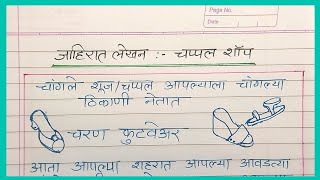 Page No.
Date
जाहिरात लेखन :- चप्पल शॉप
चांगले शूज/चप्पल आपल्याला चांगल्या
ठिकाणी नेतात
चरण फुटवेअर
आता आपल्या शहरात आपल्या आवडत्या